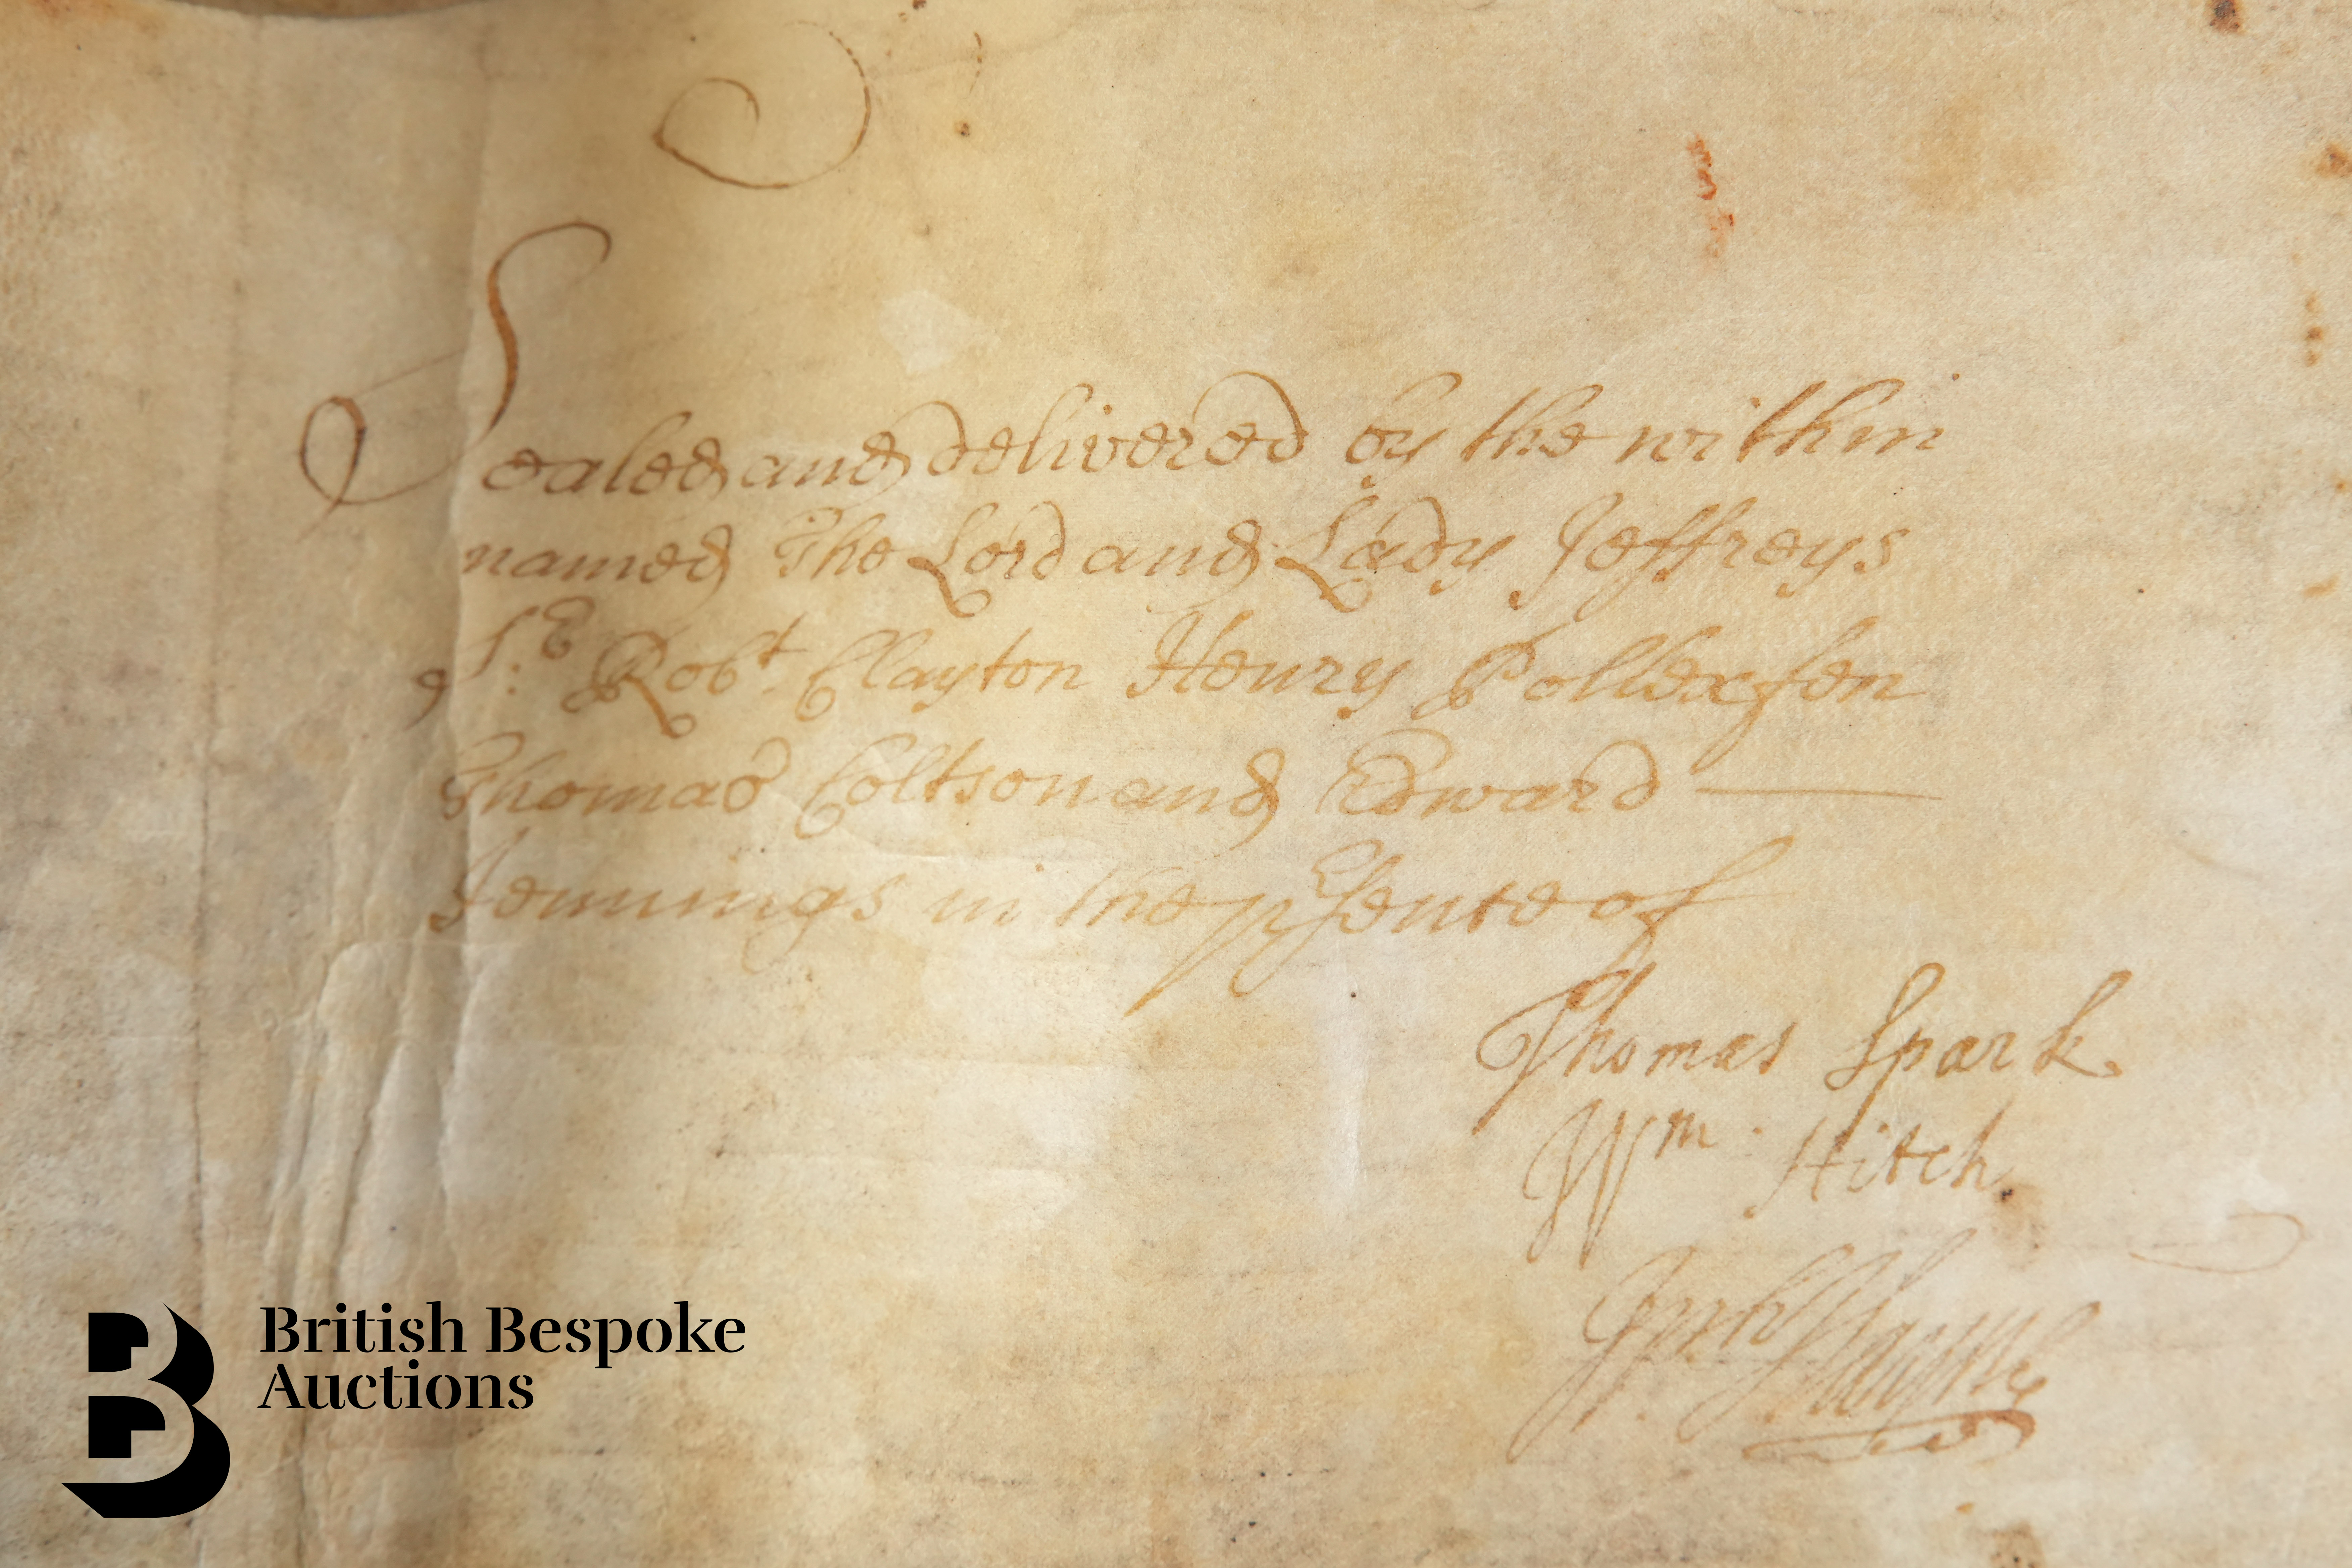 Sealed and delivered by the within
named The Lord and Lady Jeffreys
Sr: Robt. Clayton Henry Pollexfen
Thomas Coltson and Edward —
Jennings in the pr̃sence of
Thomas Spark
Wm. Hitch.
British Bespoke
Auctions